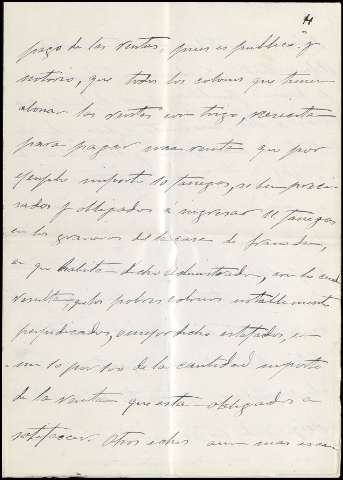 4
pago de las rentas, pues es publico y
notorio, que todos los colonos que tienen
abonar las rentas con trigo, necesita
para pagar una renta que por
ejemplo importe 10 fanegas, se ben preci-
sados y obligados á ingresar 11 fanegas
en los graneros de la casa de
en que habita dicho Administrador, con lo cual
resulta, que los pobres colonos notablemente
perjudicados, ó mejor dicho estafados, en
un 10 por 100 de la cantidad importe
de la renta que estan obligados a
satisfacer. Otros echos aun mas escan